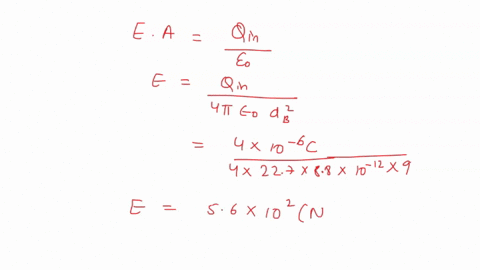 E . A = Qin / ε0
E = Qin / 4π ε0 dB²
= 4 × 10⁻⁶C / 4 × 22.7 × 8.8 × 10⁻¹² × 9
E = 5.6 × 10² (N